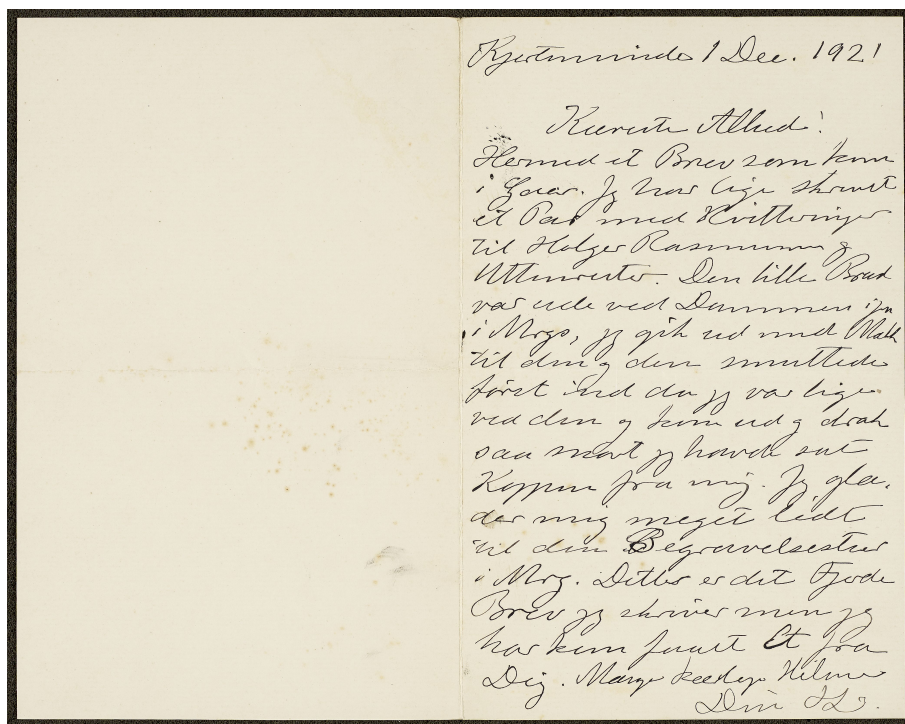 Kjerteminde 1 Dec. 1921
Kæreste Alhed!
Hermed et Brev som kom
i Gaar. Jeg har lige skrevet
et Par med Kvitteringer
til Holger Rasmussen og
Uttenreiter. Den lille Brud
var ude ved Dammen igen
i Mrgs, jeg gik ud med Mælk
til den og den smuttede
først ind da jeg var lige
ved den og kom ud og drak
saa snart jeg havde sat
Koppen fra mig. Jeg glæ-
der mig meget lidt
til den Begravelsestur
i Mrg. Dette er det Fjerde
Brev jeg skriver men jeg
har kun faaet Et fra
Dig. Mange kærlige Hilsner
Din JL.